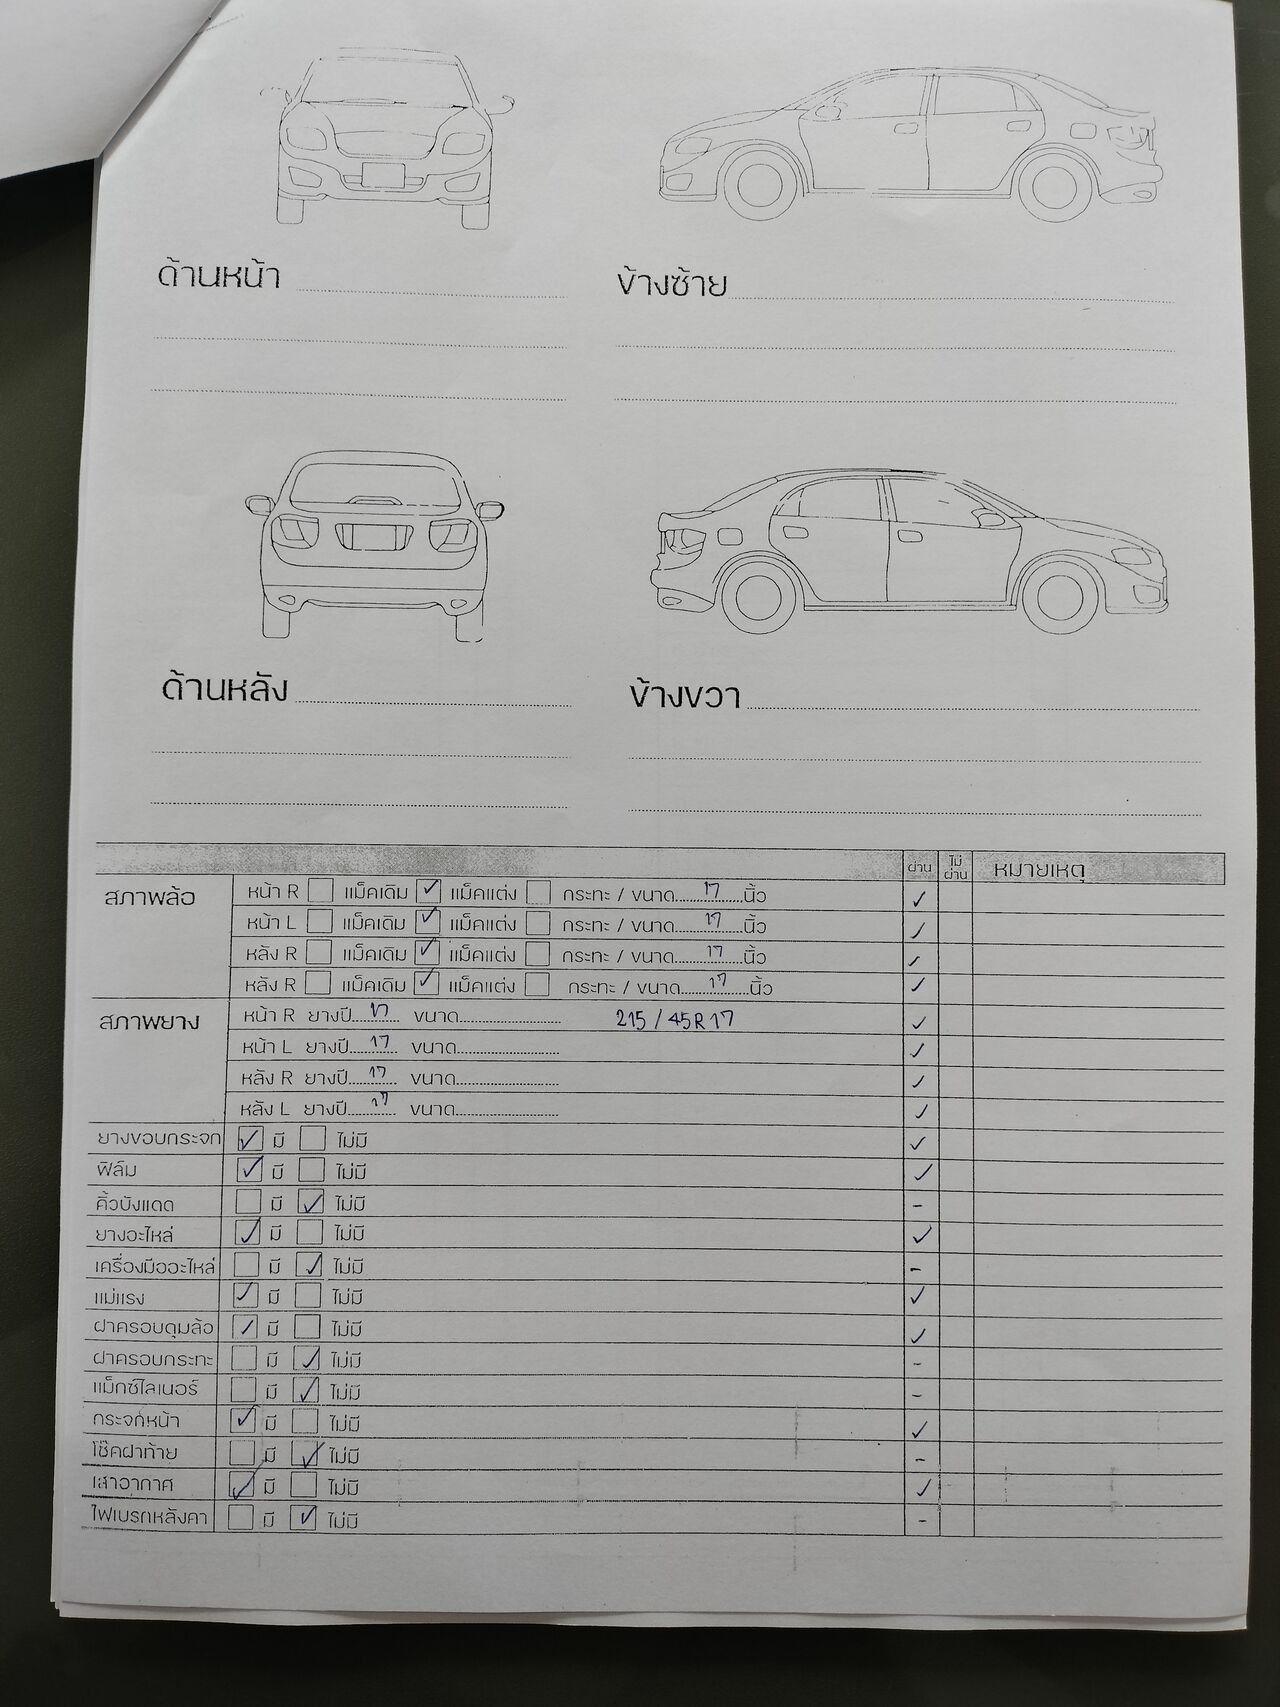 ด้านหน้า
ข้างซ้าย
ด้านหลัง
ข้างขวา
ผ่าน ไม่ผ่าน หมายเหตุ
สภาพล้อ หน้า R ☐ แม็คเดิม ☑ แม็คแต่ง ☐ กระทะ / ขนาด 17 นิ้ว ✓
หน้า L ☐ แม็คเดิม ☑ แม็คแต่ง ☐ กระทะ / ขนาด 17 นิ้ว ✓
หลัง R ☐ แม็คเดิม ☑ แม็คแต่ง ☐ กระทะ / ขนาด 17 นิ้ว ✓
หลัง R ☐ แม็คเดิม ☑ แม็คแต่ง ☐ กระทะ / ขนาด 17 นิ้ว ✓
สภาพยาง หน้า R ยางปี 17 ขนาด 215 / 45 R 17 ✓
หน้า L ยางปี 17 ขนาด ✓
หลัง R ยางปี 17 ขนาด ✓
หลัง L ยางปี 17 ขนาด ✓
ยางขอบกระจก ☑ มี ☐ ไม่มี ✓
ฟิล์ม ☑ มี ☐ ไม่มี ✓
คิ้วบังแดด ☐ มี ☑ ไม่มี -
ยางอะไหล่ ☑ มี ☐ ไม่มี ✓
เครื่องมืออะไหล่ ☐ มี ☑ ไม่มี -
แม่แรง ☑ มี ☐ ไม่มี ✓
ฝาครอบดุมล้อ ☑ มี ☐ ไม่มี ✓
ฝาครอบกระทะ ☐ มี ☑ ไม่มี -
แม็กซ์ไลเนอร์ ☐ มี ☑ ไม่มี -
กระจกหน้า ☑ มี ☐ ไม่มี ✓
โช๊คฝาท้าย ☐ มี ☑ ไม่มี -
เสาอากาศ ☑ มี ☐ ไม่มี ✓
ไฟเบรกหลังคา ☐ มี ☑ ไม่มี -